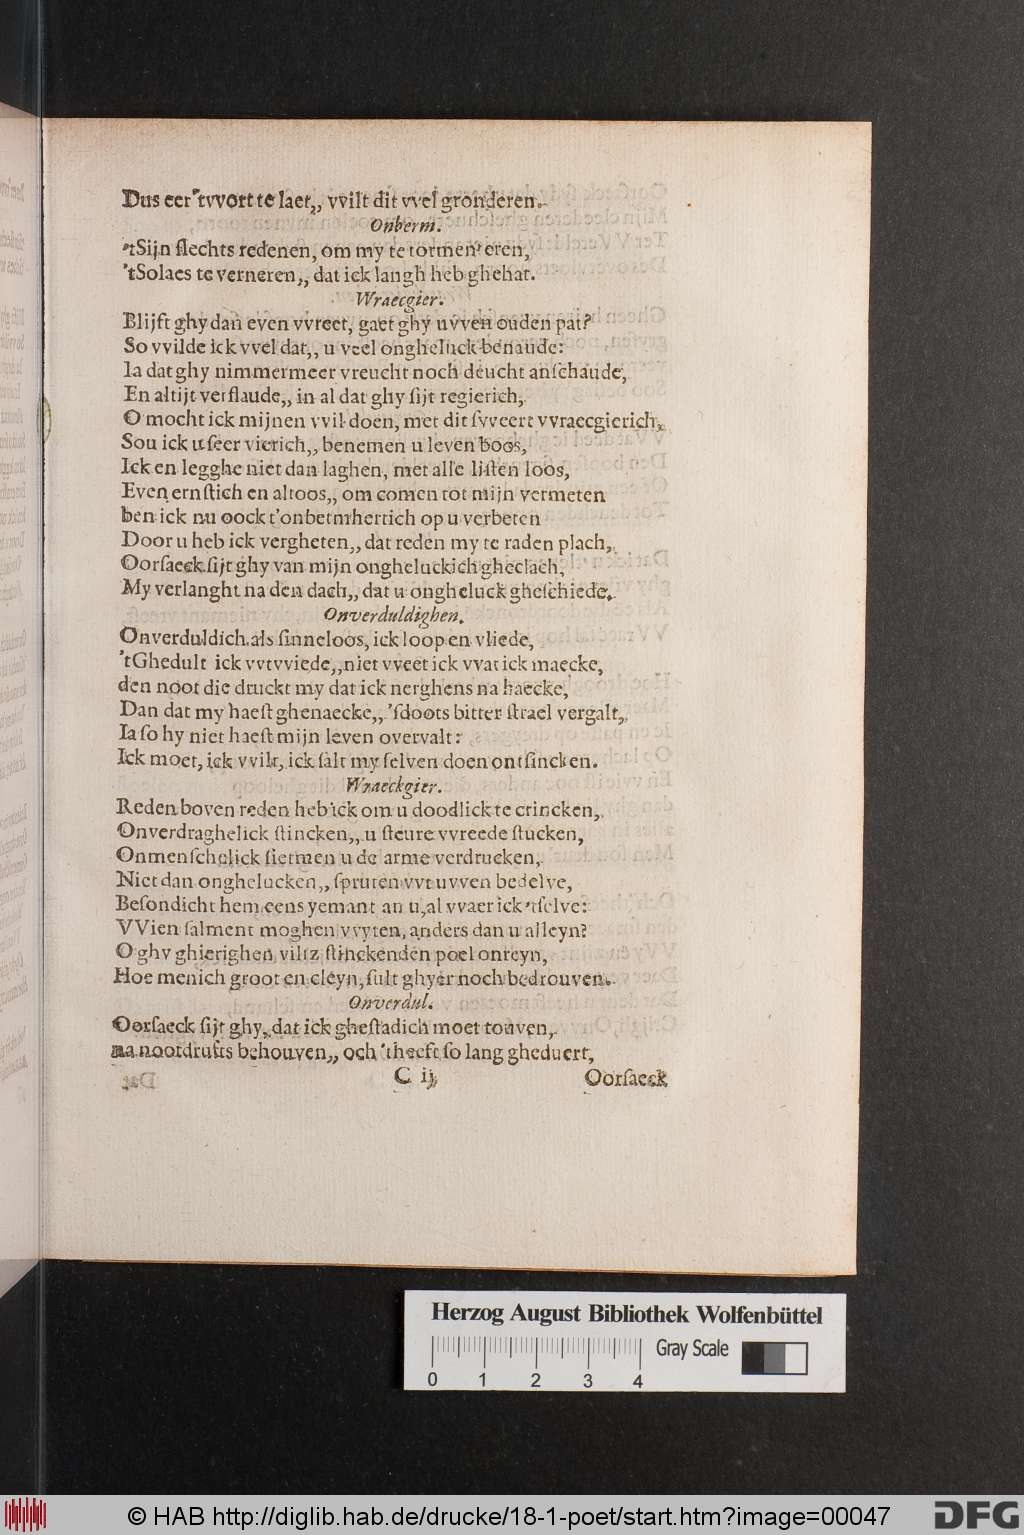 Dus eer 'tvvort te laet,, vvilt dit vvel gronderen.
Onberm.
'tSijn slechts redenen, om my te tormenteren,
'tSolaes te verneren,, dat ick langh heb ghehat.
Wraecgier.
Blijft ghy dan even vvreet, gaet ghy uvven ouden pat?
So vvilde ick vvel dat,, u veel ongheluck benaude:
Ia dat ghy nimmermeer vreucht noch deucht anschaude,
En altijt verflaude,, in al dat ghy sijt regierich,
O mocht ick mijnen vvil doen, met dit svveert vvraecgierich,
Sou ick u seer vierich,, benemen u leven boos,
Ick en legghe niet dan laghen, met alle listen loos,
Even ernstich en altoos,, om comen tot mijn vermeten
ben ick nu oock t'onbermhertich op u verbeten
Door u heb ick vergheten,, dat reden my te raden plach,
Oorsaeck sijt ghy van mijn ongheluckich gheclach,
My verlanght na den dach,, dat u ongheluck gheschiede,
Onverduldighen.
Onverduldich als sinneloos, ick loop en vliede,
'tGhedult ick vvtvviede,,niet vveet ick vvat ick maecke,
den noot die druckt my dat ick nerghens na haecke,
Dan dat my haest ghenaecke,, 'sdoots bitter strael vergalt,
Ia so hy niet haest mijn leven overvalt:
Ick moet, ick vvilt, ick salt my selven doen ontsincken.
Wraeckgier.
Reden boven reden heb ick om u doodlick te crincken,
Onverdraghelick stincken,, u steure vvreede stucken,
Onmenschelick siermen u de arme verdrucken,
Niet dan onghelucken,, spruten vvt uvven bedelve,
Besondicht hem eens yemant an u, al vvaer ick 'tselve:
VVien salment moghen vvyten, anders dan u alleyn?
O ghy ghierighen viltz stinckenden poel onreyn,
Hoe menich groot en cleyn, sult ghyer noch bedrouven.
Onverdul.
Oorsaeck sijt ghy, dat ick ghestadich moet touven,
na nootdrufts behouven,, och 'theeft so lang gheduert,
C ij
Oorsaeck
Herzog August Bibliothek Wolfenbüttel
Gray Scale
0 1 2 3 4
© HAB http://diglib.hab.de/drucke/18-1-poet/start.htm?image=00047
DFG